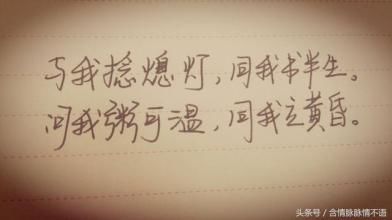 与我捻熄灯，同我书半生。
问我粥可温，同我立黄昏。
头条号 / 含情脉脉情不语